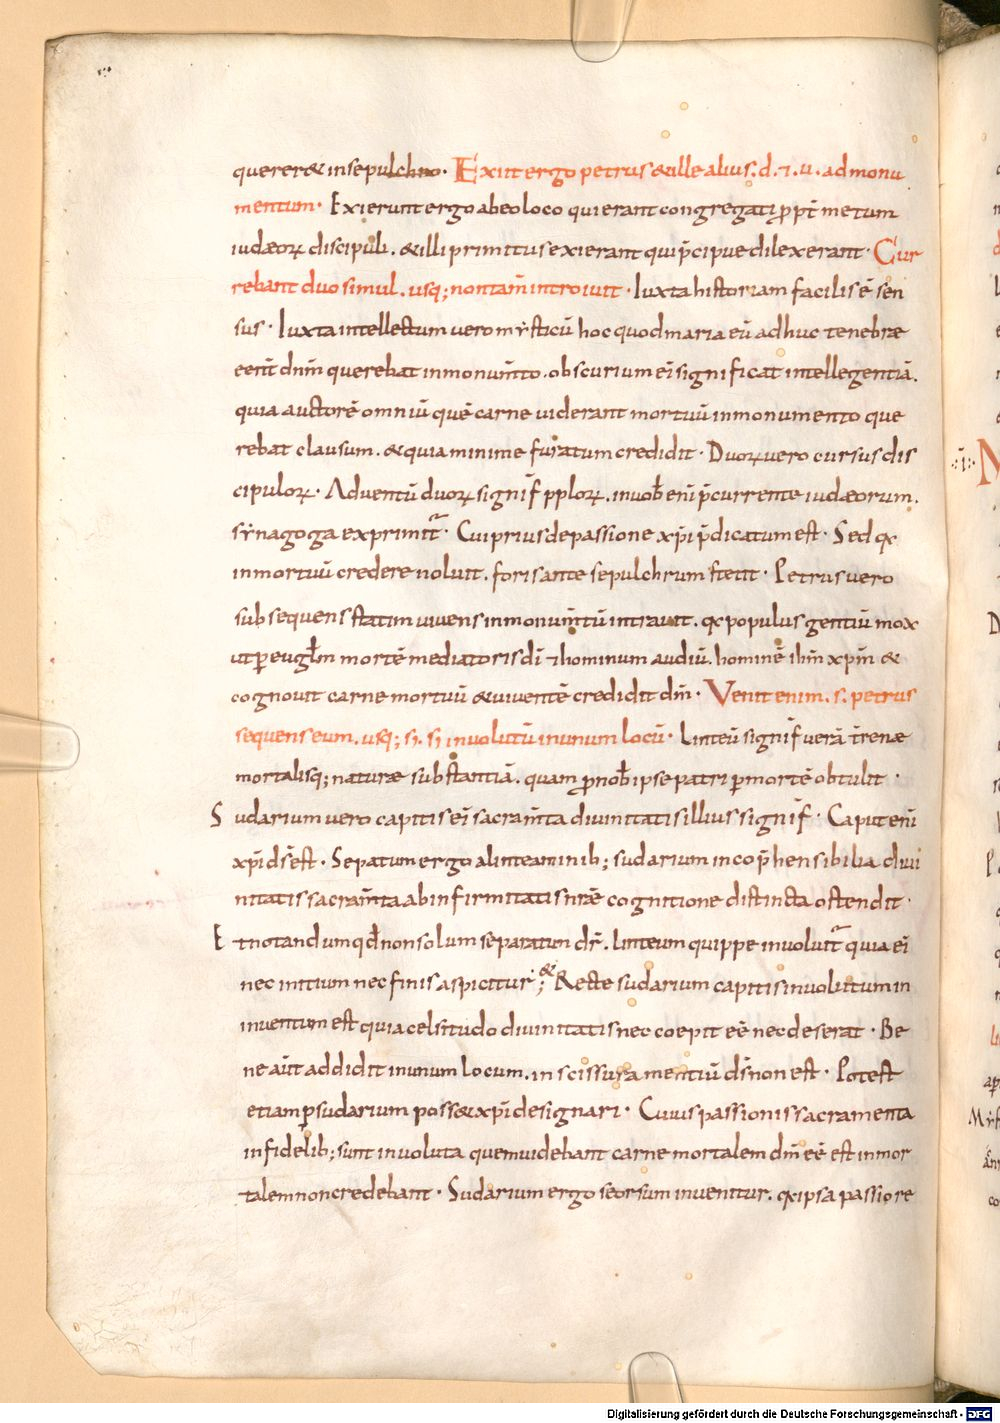 querer& insepulchro. Exiit ergo petrus & ille alius. d. ⁊. u. ad monu
mentum. Exierunt ergo ab eo loco qui erant congregati ꝓpt̄ metum
iudæoꝝ discipuli. & illi primitus exierant qui p̄cipue dilexerant. Cur
rebant duo simul. usq; non tam̄ introiuit. Iuxta historiam facilis ē sen
sus. Iuxta intellectum uero mẏsticū hoc quod maria cū adhuc tenebræ
eent̄ dnm̄ querebat in monum̄to. obscurium ei signi ficat intellegentiā.
quia auctorē omniū quē carne uiderant mortuū in monumento que
rebat clausum. & quia minime furatum credidit. Duoꝝ uero cursus dis
cipuloꝝ. Aduentū duoꝝ signif̄ pploꝝ. in uob̄ eni p̄currente iudæorum.
sẏnagoga exprimit̄. Cui prius de passione xp̄i p̄dicatum est. Sed qꝛ
in mortuū credere noluit. foris ante sepulchrum stetit. Petrus uero
subsequens statim uiuens in monum̄tū intrauit. qꝛ populus gentiū mox
ut per eugl̄m mortē mediatoris dī ⁊ hominum audiū. hominē ihm̄ xpm̄ &
cognouit carne mortuū & uiuentē credidit dm̄. Venit enim. s. petrus
sequens eum. usq; s̄. s̄; inuolutū in unum locū. Linteū signif̄ uerā t̄renæ
mortalisq; naturæ substantiā. quam ꝓ nob̄ ipse patri ꝑ mortē obtulit.
Sudarium uero capitis ei sacram̄ta diuinitatis illius signif̄. Caput eni
xp̄i ds̄ est. Separatum ergo a linteaminib; sudarium inco p̄hensibilia diui
nitatis sacram̄ta ab infirmitatis nr̄æ cognitione distincta ostendit.
Et notandum qd̄ non solum separatum dr̄. linteum quippe inuoluit̄ quia ei
nec initium nec finis aspicitur; & Recte sudarium capitis inuolutum in
inuentum est quia celsitudo diuinitatis nec coepit eē nec deserat. Be
ne aūt addidit in unum locum. in scissura mentiū ds̄ non est. Potest
etiam ꝑ sudarium poss& xp̄i designari. Cuius passionis sacramenta
infidelib; sunt inuoluta quem uidebant carne mortalem dm̄ eē est inmor
talem non credebant. Sudarium ergo seorsum inuenitur. qꝛ ipsa passio re
Digitalisierung gefördert durch die Deutsche Forschungsgemeinschaft - DFG